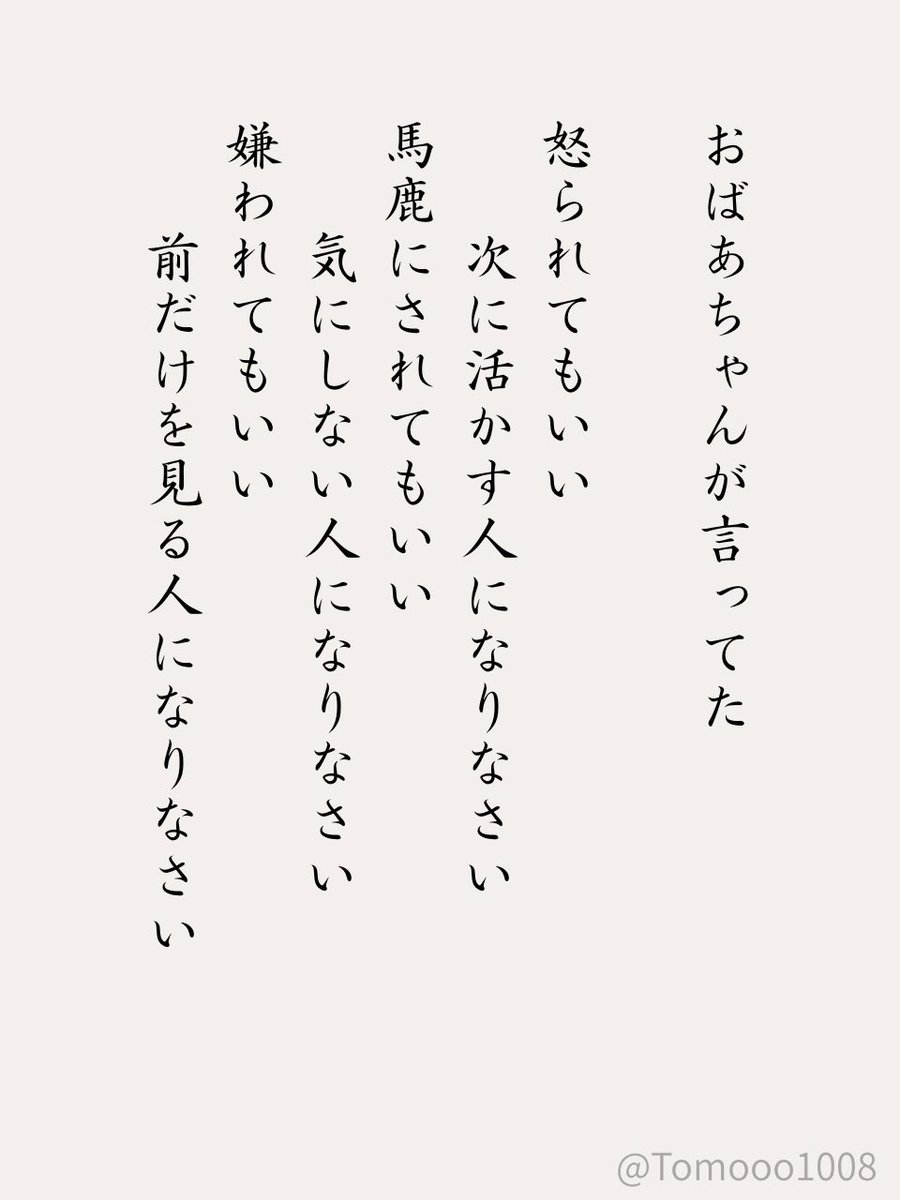 おばあちゃんが言ってた
怒られてもいい
次に活かす人になりなさい
馬鹿にされてもいい
気にしない人になりなさい
嫌われてもいい
前だけを見る人になりなさい
@Tomooo1008